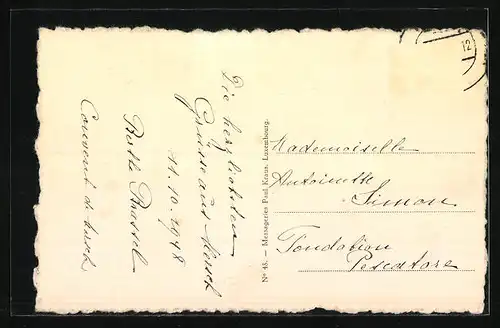 Die herzlichsten
Grüsse aus Mersch
11.10.1948
Berthe Brassel
Couvent de Mersch
N° 43. — Messageries Paul Kraus, Luxembourg.
Mademoiselle
Antoinette
Simon
Fondation
Pescatore
12